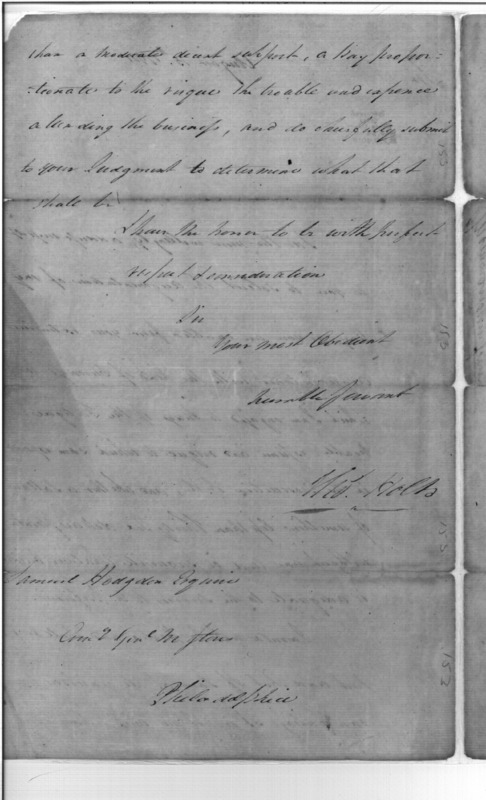 than a moderate decent support, a pay propor:
:tionate to the risques the trouble and expences
attending the business, and do chearfully submit
to your Judgment to determine what that
shall be
I have the honor to be with perfect
respect & consideration
Sir
Your most Obedient
humble Servant
Holt
Samuel Hodgdon Esquire
Philadelphia